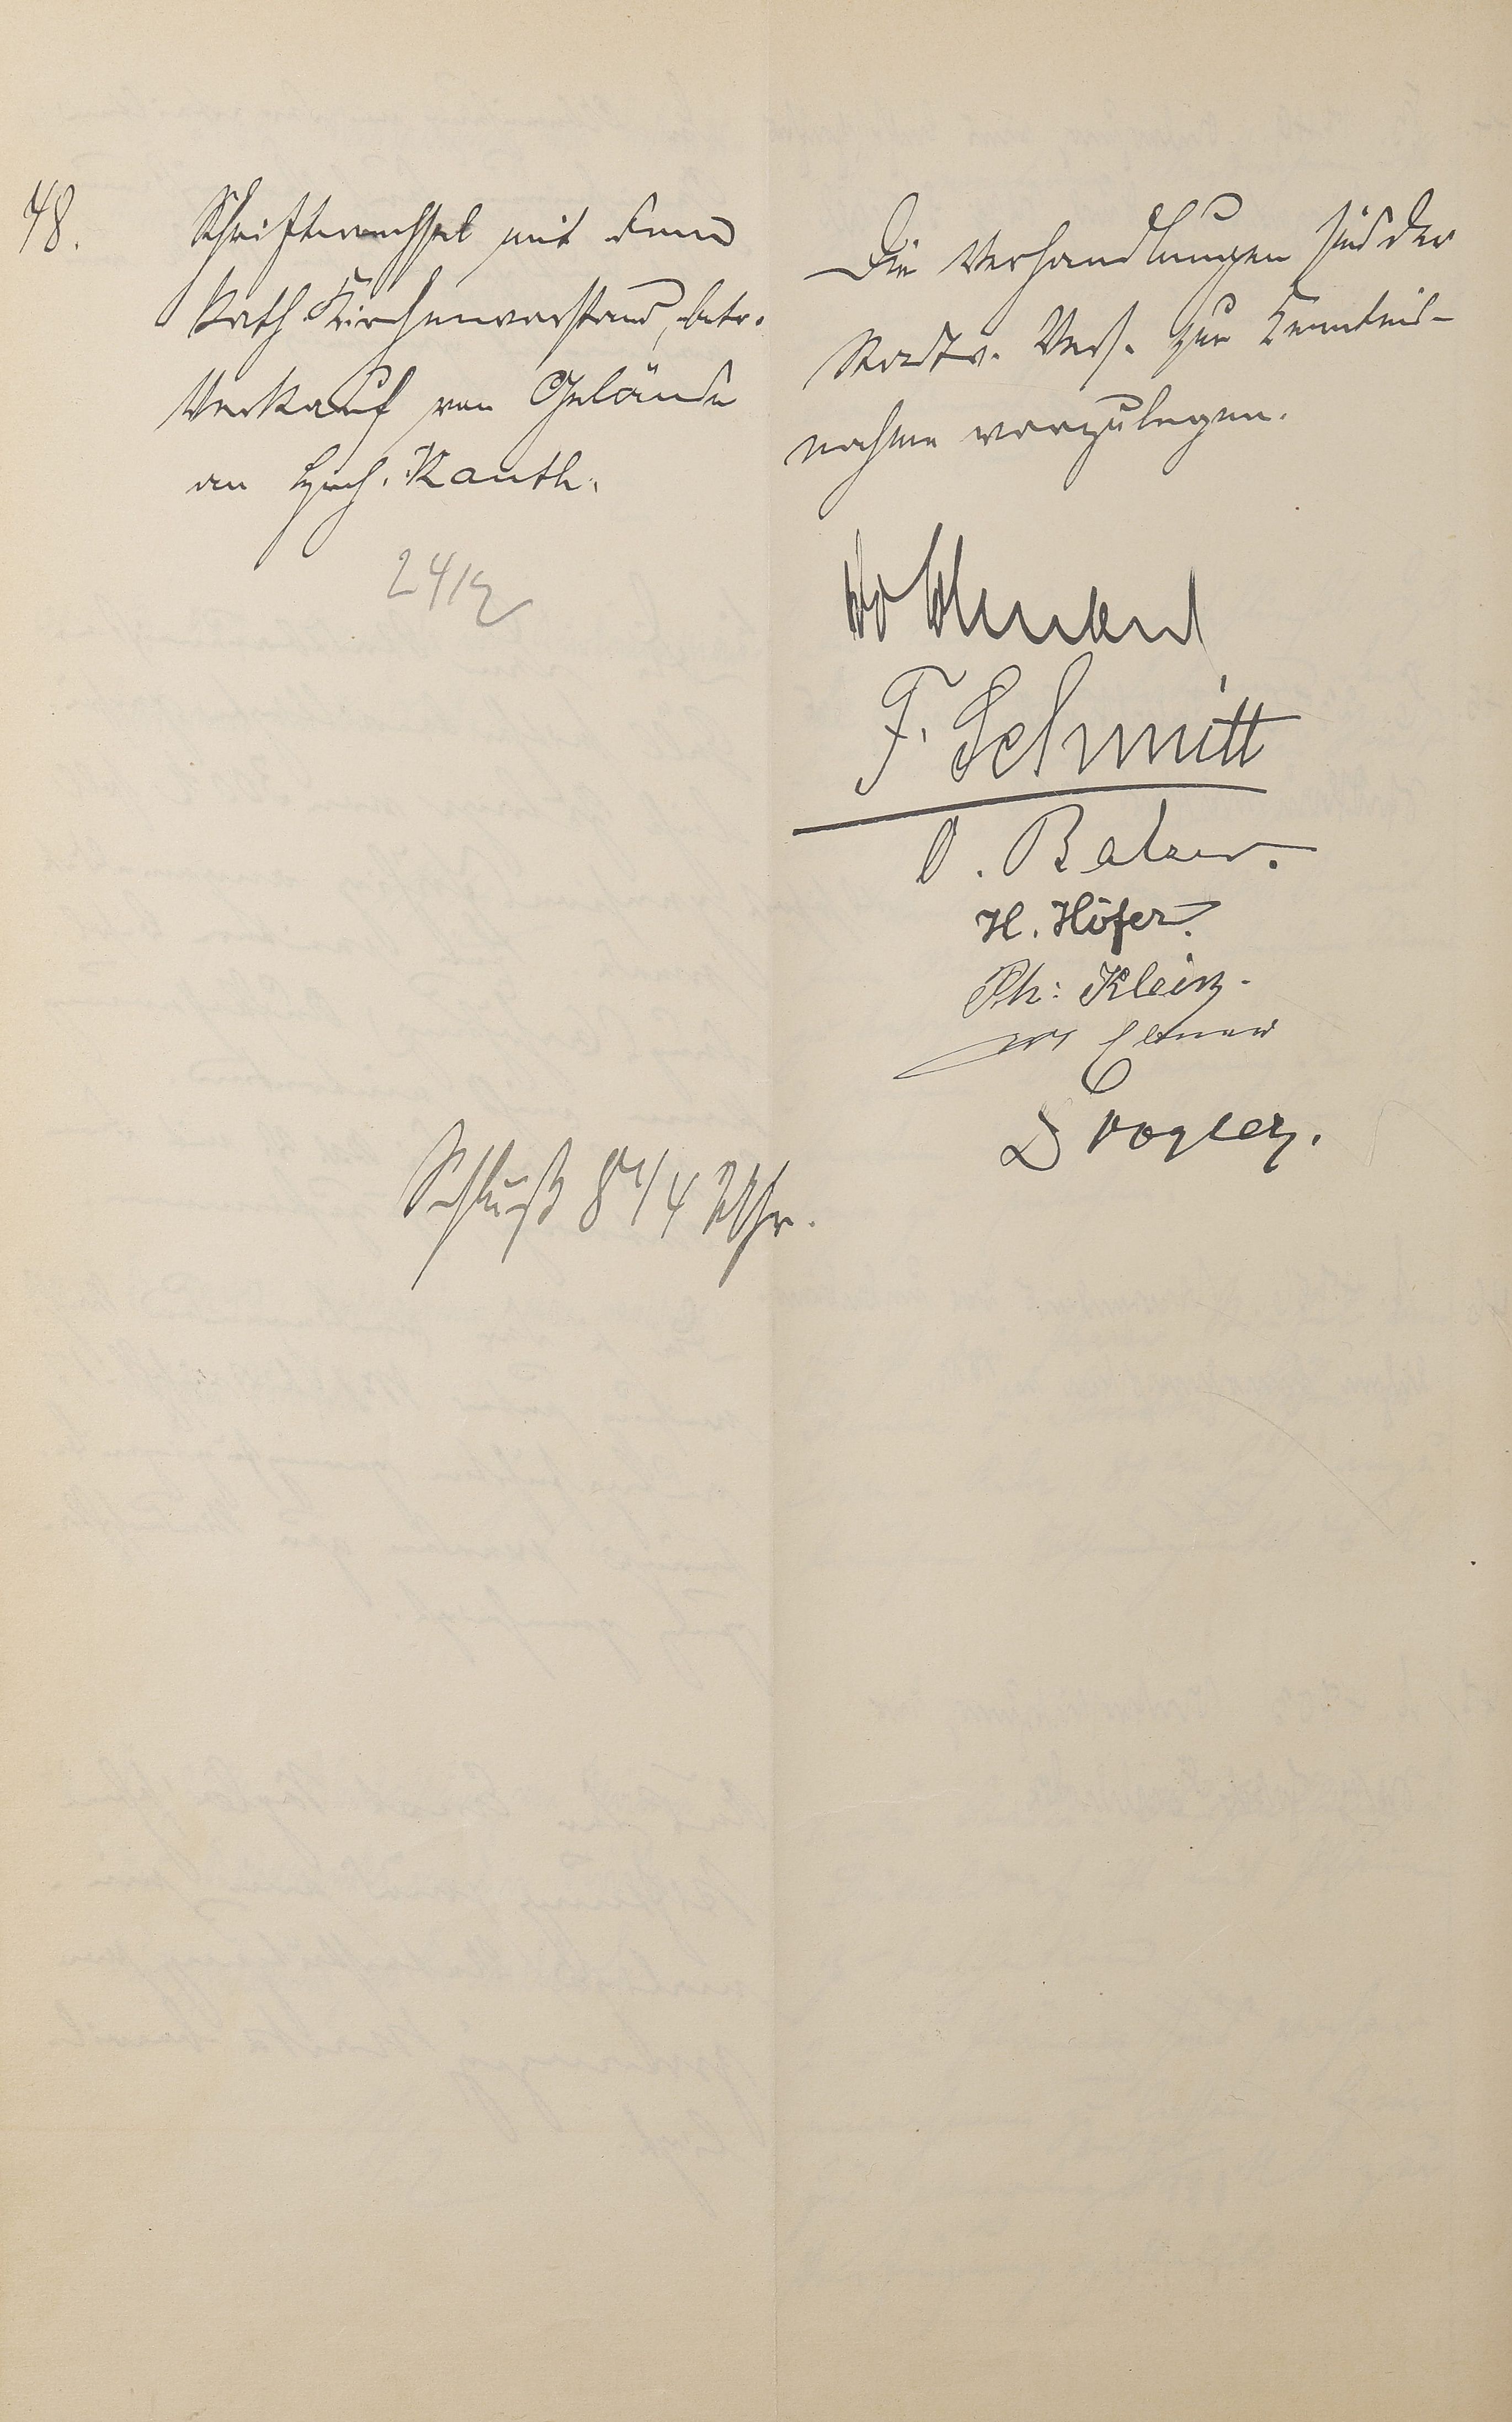 48.
Schriftwechsel mit dem
kath. Kirchenvorstand, betr.
Verkauf von Gelände
an Hch. Kanth.
Die Verhandlungen sind der
Stadtv. Vers. zur Kenntnis-
nahme vorzulegen.
F. Schmitt
O. Balzer.
H. Höfer.
Ph: Klein.
D Vogler.
Schluß 8 1/4 Uhr.